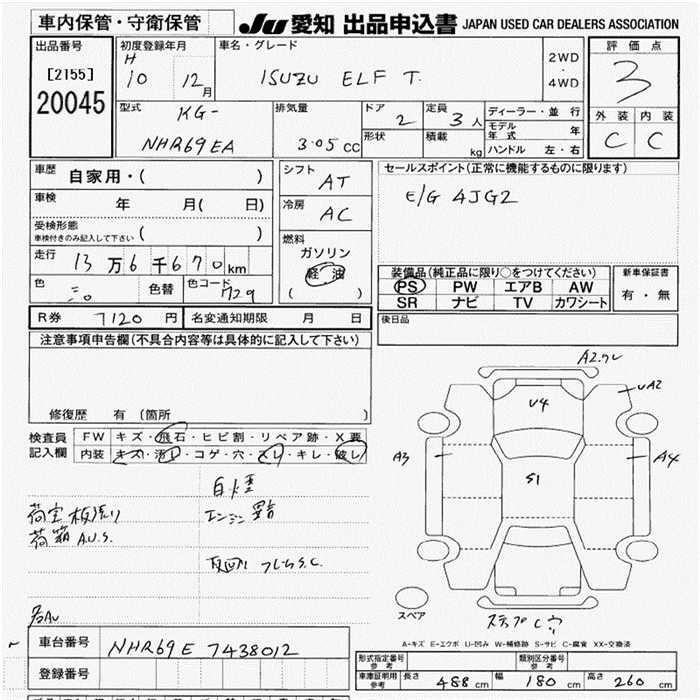 車内保管・守衛保管
JU 愛知 出品申込書 JAPAN USED CAR DEALERS ASSOCIATION
出品番号
[2155]
20045
初度登録年月
H
10 12月
車名・グレード
ISUZU ELF T.
2WD
・
4WD
評価点
3
外装 内装
C C
型式
KG-
NHR69EA
排気量
3.05 CC
ドア
2
形状
定員
3人
積載
kg
ディーラー・並行
モデル年式 年
ハンドル 左・右
車歴
自家用・( )
車検 年 月( 日)
受検形態
車検付きのみ記入して下さい ( )
走行 13万6千670km
色 色替 色コード 729
シフト
AT
冷房
AC
燃料
ガソリン
軽油
( )
セールスポイント(正常に機能するものに限ります)
E/G 4JG2
装備品(純正品に限り○をつけてください)
PS PW エアB AW
SR ナビ TV カワシート
新車保証書
有・無
R券 7120円 名変通知期限 月 日
後日品
注意事項申告欄(不具合内容等は具体的に記入して下さい)
修復歴 有 (箇所 )
検査員
記入欄
FW キズ・飛石・ヒビ割・リペア跡・X要
内装 キズ・汚レ・コゲ・穴・スレ・キレ・破レ
荷箱 A.U.S.
エンジン
A2
UA2
U4
A3
S1
A4
スペア
ステップ C
A-キズ E-エクボ U-凹み W-補修跡 S-サビ C-腐食 XX-交換済
車台番号 NHR69E 7438012
登録番号
形式指定番号
参考
類別区分番号
参考
車庫証明用
参考
長さ 488 cm 幅 180 cm 高さ 260 cm